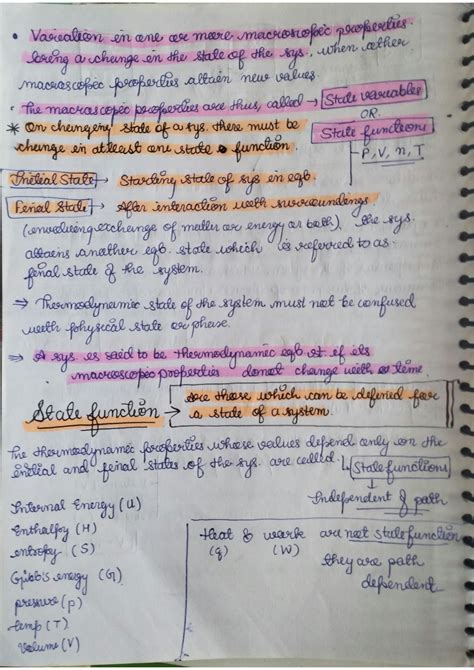 • Variation in one or more macroscopic properties
bring a change in the state of the sys, when other
macroscopic properties attain new values.
• The macroscopic properties are thus, called → State variables
OR
State functions
P, V, n, T
* On changing state of a sys. there must be
change in atleast one state function.
Initial State → Starting state of sys in eqb.
Final State → After interaction with surroundings
(involving exchange of matter or energy or both). the sys.
attains another eqb. state which is referred to as
final state of the system.
⇒ Thermodynamic state of the system must not be confused
with physical state or phase.
⇒ A sys. is said to be thermodynamic eqb st if its
macroscopic properties donot change with time
State function → are those which can be defined for
a state of a system.
The thermodynamic properties whose values depend only on the
initial and final states of the sys. are called
State functions
↓
Independent of path
Internal Energy (U)
Enthalpy (H)
entropy (S)
Gibb's energy (G)
pressure (p)
temp (T)
Volume (V)
Heat & work are not state function
(q) (W)
they are path
dependent